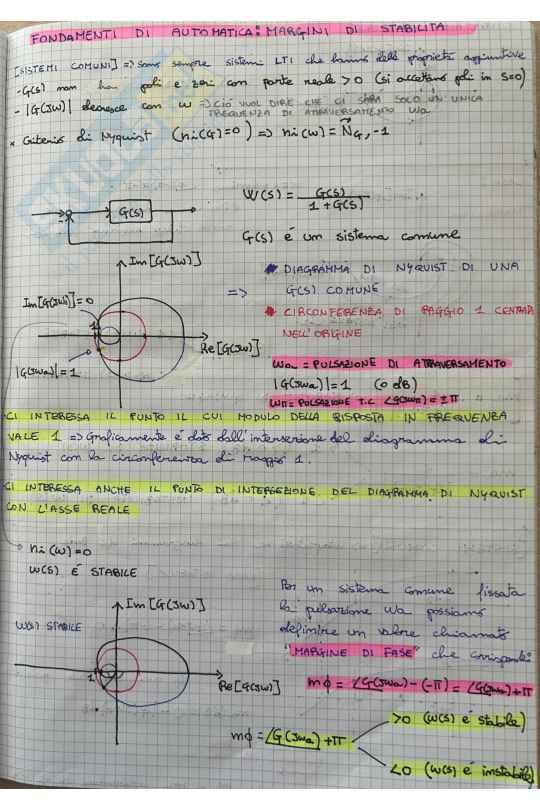 FONDAMENTI DI AUTOMATICA: MARGINI DI STABILITA'
[SISTEMI COMUNI] => sono sempre sistemi LTI che hanno delle proprietà aggiuntive
- G(s) non ha poli e zeri con parte reale > 0 (si accettano poli in s=0)
- |G(jw)| decresce con w => CIÓ VUOL DIRE CHE CI SARÀ SOLO UN'UNICA
FREQUENZA DI ATTRAVERSAMENTO wa
* Criterio di Nyquist (ni(G)=0) => ni(w) = N̂G,-1
G(s)
W(s) = G(s)
1 + G(s)
G(s) é un sistema comune
Im[G(jw)]
DIAGRAMMA DI NYQUIST DI UNA
G(s) COMUNE
=>
Im[G(jw)]=0
CIRCONFERENZA DI RAGGIO 1 CENTRATA
NELL'ORIGINE
1
Re[G(jw)]
wa = PULSAZIONE DI ATTRAVERSAMENTO
|G(jwa)|=1
|G(jwa)|=1 (0 dB)
wπ = PULSAZIONE T.C. ∠G(jwπ) = ±π
CI INTERESSA IL PUNTO IL CUI MODULO DELLA RISPOSTA IN FREQUENZA
VALE 1 => Graficamente é dato dall'intersezione del diagramma di
Nyquist con la circonferenza di raggio 1.
CI INTERESSA ANCHE IL PUNTO DI INTERSEZIONE DEL DIAGRAMMA DI NYQUIST
CON L'ASSE REALE
ni(w)=0
W(s) É STABILE
Per un sistema comune fissata
la pulsazione wa possiamo
definire un valore chiamato
"MARGINE DI FASE" che corrisponde:
Im[G(jw)]
W(s) STABILE
1
Re[G(jw)]
mφ = ∠G(jwa) - (-π) = ∠G(jwa) + π
mφ = ∠G(jwa) + π
>0 (W(s) é stabile)
<0 (W(s) é instabile)